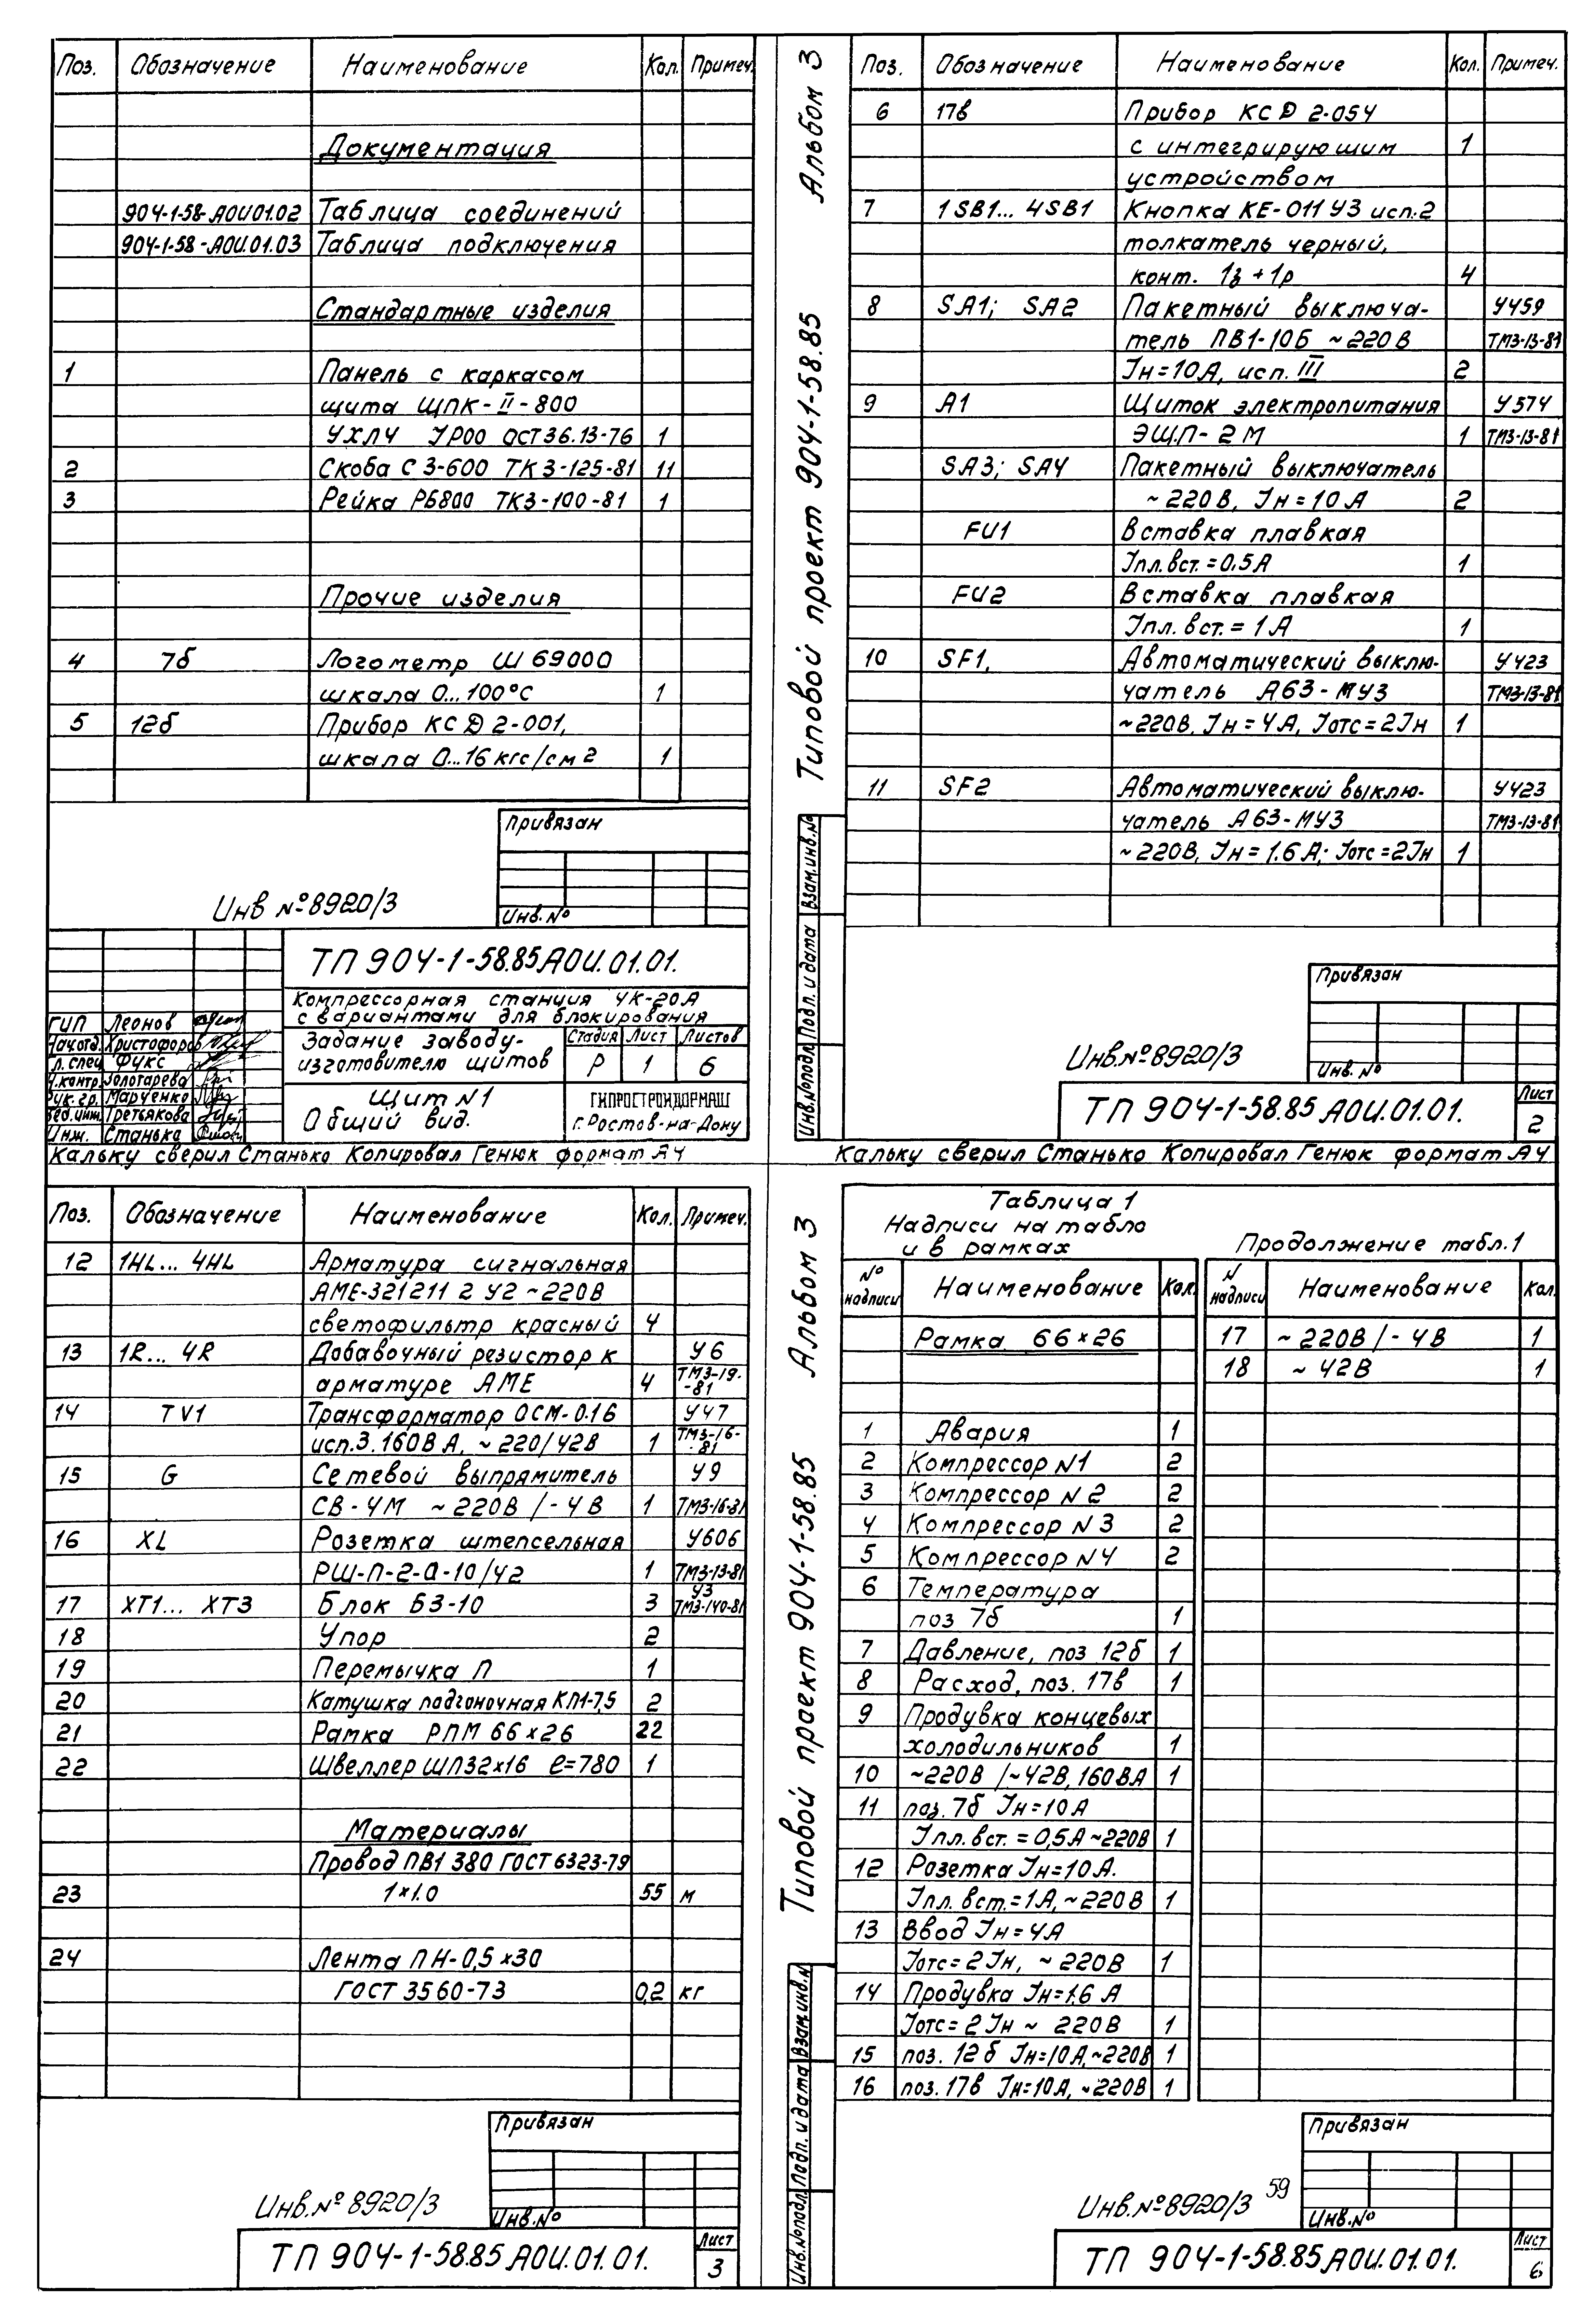 Поз. Обозначение Наименование Кол. Примеч.
Документация
904-1-58-АОИ.01.02 Таблица соединений
904-1-58-АОИ.01.03 Таблица подключения
Стандартные изделия
1 Панель с каркасом
щита ЩПК-II-800
УХЛ4 УР00 ОСТ36.13-76 1
2 Скоба СЗ-600 ТК3-125-81 11
3 Рейка РБ800 ТК3-100-81 1
Прочие изделия
4 7б Логометр Ш 69000
шкала 0...100°С 1
5 12б Прибор КСД 2-001,
шкала 0...16 кгс/см2 1
Привязан
Инв.№
Инв №8920/3
ТП 904-1-58.85 АОИ.01.01.
Компрессорная станция 4К-20А
с вариантами для блокирования
ГИП Леонов
Нач.отд. Христофоров
Гл.спец Фукс
Н.контр. Золотарева
Рук.гр. Марченко
Вед.инж. Третьякова
Инж. Станько
Задание заводу-
изготовителю щитов
Стадия Лист Листов
Р 1 6
Щит N1
Общий вид.
ГИПРОСТРОЙДОРМАШ
г.Ростов-на-Дону
Кальку сверил Станько Копировал Генюк формат А4
Альбом 3
Типовой проект 904-1-58.85
Поз. Обозначение Наименование Кол. Примеч.
6 17в Прибор КСД 2-054
с интегрирующим 1
устройством
7 1SB1... 4SB1 Кнопка КЕ-011У3 исп.2
толкатель черный,
конт. 1з+1р 4
8 SA1; SA2 Пакетный выключа- У459
тель ПВ1-10Б ~220В ТМ3-13-81
Iн=10А, исп. III 2
9 А1 Щиток электропитания У574
ЭЩП-2М 1 ТМ3-13-81
SA3; SA4 Пакетный выключатель
~220В, Iн=10А 2
FU1 Вставка плавкая
Iпл.вст.=0,5А 1
FU2 Вставка плавкая
Iпл.вст.=1А 1
10 SF1, Автоматический выклю- У423
чатель А63-МУ3 ТМ3-13-81
~220В, Iн=4А, Iотс=2Iн 1
11 SF2 Автоматический выклю- У423
чатель А63-МУ3 ТМ3-13-81
~220В, Iн=1.6А; Iотс=2Iн 1
Взам.инв.№
Подп. и дата
Инв.№подл.
Привязан
Инв.№
Инв.№8920/3
ТП 904-1-58.85 АОИ.01.01.
Лист
2
Кальку сверил Станько Копировал Генюк формат А4
Поз. Обозначение Наименование Кол. Примеч.
12 1HL... 4HL Арматура сигнальная
АМЕ-321211 2 У2 ~220В
светофильтр красный 4
13 1R... 4R Добавочный резистор к У6
арматуре АМЕ 4 ТМ3-19-
-81
14 TV1 Трансформатор ОСМ-0.16 У47
исп.3. 160ВА, ~220/42В 1 ТМ3-16-
-81
15 G Сетевой выпрямитель У9
СВ-4М ~220В/-4В 1 ТМ3-16-81
16 XL Розетка штепсельная У606
РШ-П-2-0-10/42 1 ТМ3-13-81
17 ХТ1... ХТ3 Блок БЗ-10 3 У3
ТМ3-140-81
18 Упор 2
19 Перемычка П 1
20 Катушка подгоночная КП1-7,5 2
21 Рамка РПМ 66×26 22
22 Швеллер ШП32×16 ℓ=780 1
Материалы
Провод ПВ1 380 ГОСТ 6323-79
23 1×1.0 55 м
24 Лента ПН-0,5×30
ГОСТ 3560-73 0,2 кг
Привязан
Инв.№
Инв.№8920/3
ТП 904-1-58.85 АОИ.01.01.
Лист
3
Альбом 3
Типовой проект 904-1-58.85
Таблица 1
Надписи на табло
и в рамках
№ надписи Наименование Кол.
Рамка 66×26
1 Авария 1
2 Компрессор N1 2
3 Компрессор N2 2
4 Компрессор N3 2
5 Компрессор N4 2
6 Температура
поз 7б 1
7 Давление, поз 12б 1
8 Расход, поз. 17в 1
9 Продувка концевых
холодильников 1
10 ~220В/~42В, 160ВА 1
11 поз. 7б Iн=10А
Iпл.вст.=0,5А ~220В 1
12 Розетка Iн=10А.
Iпл.вст.=1А, ~220В 1
13 Ввод Iн=4А
Iотс=2Iн, ~220В 1
14 Продувка Iн=1.6А
Iотс=2Iн ~ 220В 1
15 поз. 12б Iн=10А, ~220В 1
16 поз. 17в Iн=10А, ~220В 1
Продолжение табл.1
N надписи Наименование Кол.
17 ~220В/-4В 1
18 ~42В 1
Взам.инв.N
Подп. и дата
Инв.№подл.
Привязан
Инв.№
Инв.№8920/3
59
ТП 904-1-58.85 АОИ.01.01.
Лист
6